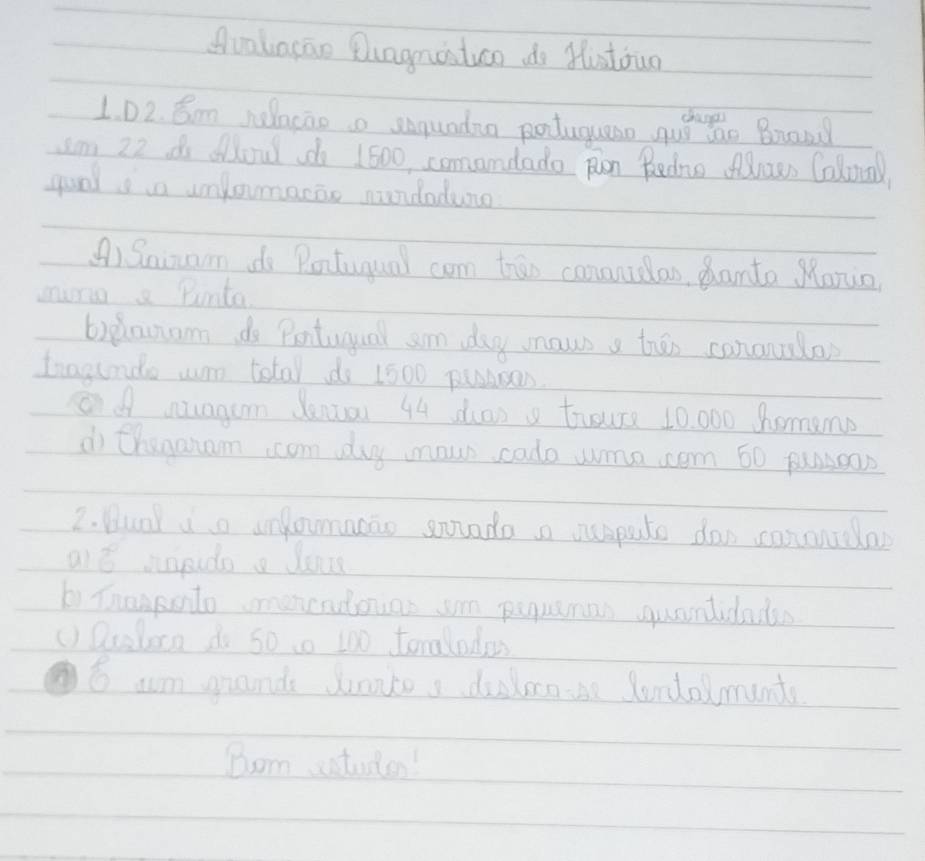 Avaliação Diagnóstico de História
1. D2. Em relação a esquadra portuguesa que chegou ao Brasil
em 22 de Abril de 1500, comandado por Pedro Alvares Cabral,
qual é a informação verdadeira
A) Sairam de Portugual com três caravelas, Santa Maria,
nina e Pinta.
b) Sairam de Portugual em dez naus e três caravelas
tragendo um total de 1500 pessoas.
c) A viagem levou 44 dias e trouxe 10.000 homens
d) Chegaram com dez naus cada uma com 50 pessoas
2. Qual é a informação errada a respeito das caravelas
a) É rápida e leve
b) Trasporta mercadorias em pequenas quantidades
c) Desloca de 50 a 100 toneladas
É um grande barco e desloca-se lentalmente.
Bom estudos!